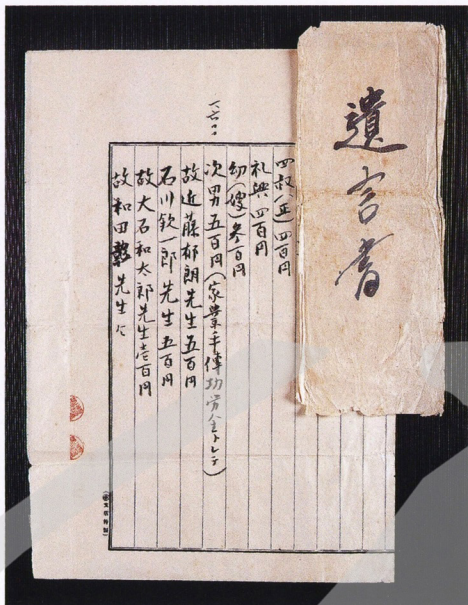 遺言書
四叔(正)四百円
礼典 四百円
幼(俊)叁百円
次男五百円(家業手傳功労金トシテ)
故近藤郁朗先生五百円
石川欽一郎先生五百円
故大石和太郎先生壱百円
故和田 先生仝